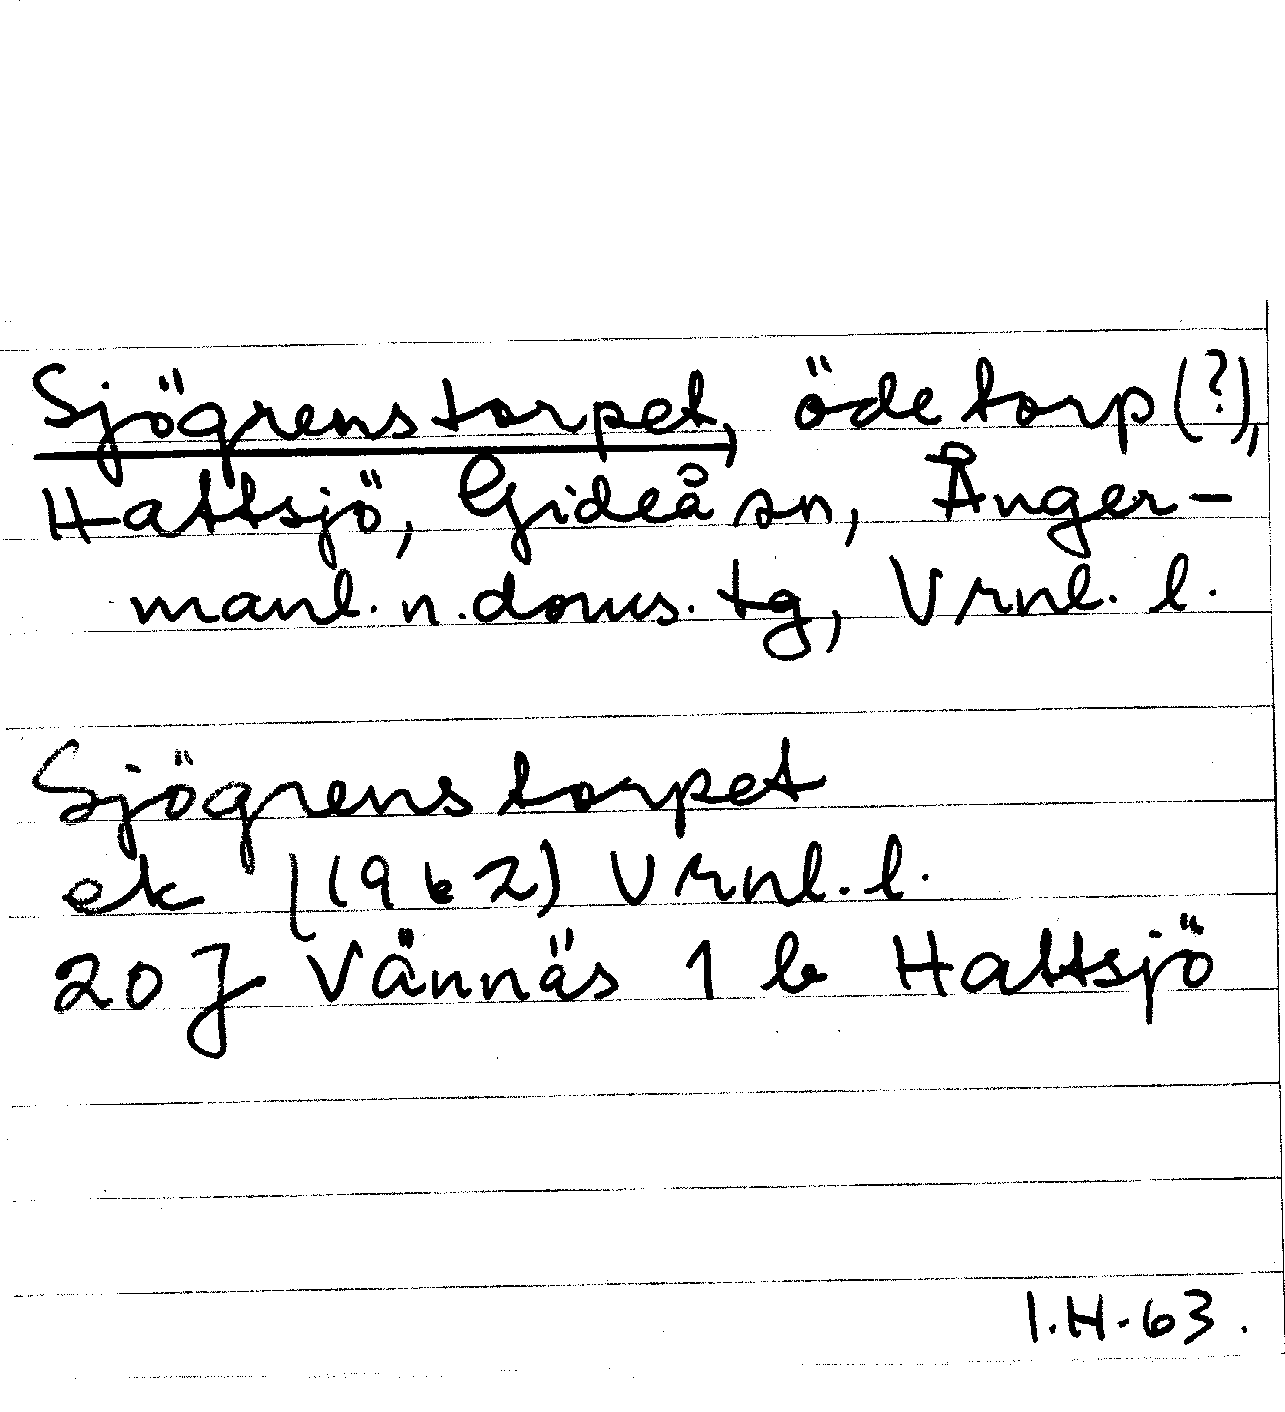 Sjögrenstorpet, ödetorp(?),
Hattsjö, Gideå sn, Ånger-
manl. n. doms. tg, Vrnl. l.
Sjögrenstorpet
ek (1962) Vrnl. l.
20 J Vännäs 1 b Hattsjö
I.H. 63.